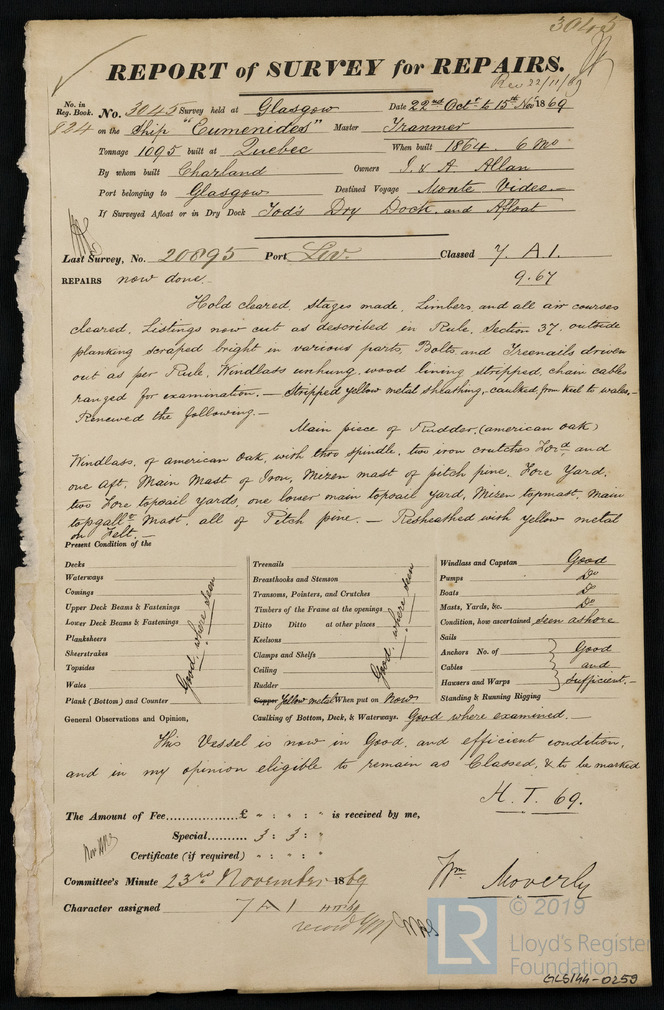 3045
REPORT of SURVEY for REPAIRS.
Rec 22/11/69
No. in Reg. Book. No. 3045 Survey held at Glasgow Date 22nd Octr to 15th Nov 1869
824 on the Ship "Eumenides" Master Tranmer
Tonnage 1095 built at Quebec When built 1864. 6 Mo
By whom built Charland Owners J. & A. Allan
Port belonging to Glasgow Destined Voyage Monte Video
If Surveyed Afloat or in Dry Dock Tod's Dry Dock and Afloat
Last Survey, No. 20895 Port Liv. Classed 7. A.1.
9.67
REPAIRS now done.
Hold cleared, Stages made, Limbers, and all air courses
cleared, Listings now cut as described in Rule, Section 37, outside
planking scraped bright in various parts, Bolts and Treenails driven
out as per Rule, Windlass unhung, wood lining stripped, chain cables
ranged for examination. — Stripped yellow metal sheathing, caulked from keel to wales, —
Renewed the following. —
Main piece of Rudder, (american oak)
Windlass, of american Oak, with thro spindle, two iron crutches Ford and
one Aft, Main Mast of Iron, Mizen mast of pitch pine, Fore Yard,
two Fore topsail yards, one lower main topsail yard, Mizen topmast, Main
topgallt Mast, all of Pitch pine. — Resheathed with yellow metal
on Felt. —
Present Condition of the
Decks
Waterways
Comings
Upper Deck Beams & Fastenings
Lower Deck Beams & Fastenings
Planksheers
Sheerstrakes
Topsides
Wales
Plank (Bottom) and Counter
Good where seen
Treenails
Breasthooks and Stemson
Transoms, Pointers, and Crutches
Timbers of the Frame at the openings
Ditto Ditto at other places
Keelsons
Clamps and Shelfs
Ceiling
Rudder
Good where seen
Copper Yellow metal When put on Now
Windlass and Capstan Good
Pumps Do
Boats Do
Masts, Yards, &c. Do
Condition, how ascertained seen ashore
Sails
Anchors No. of Good
Cables and
Hawsers and Warps sufficient. —
Standing & Running Rigging
General Observations and Opinion, Caulking of Bottom, Deck, & Waterways. Good where examined. —
This Vessel is now in Good, and efficient condition,
and in my opinion eligible to remain as Classed, & to be marked
H. T. 69.
The Amount of Fee £ " : " : " is received by me,
Special 3 : 3 : "
Certificate (if required) " : " : "
Committee's Minute 23rd November 1869
Wm Moverly
Character assigned 7 A 1
© 2019
LR Lloyd's Register
Foundation
GLS144-0259